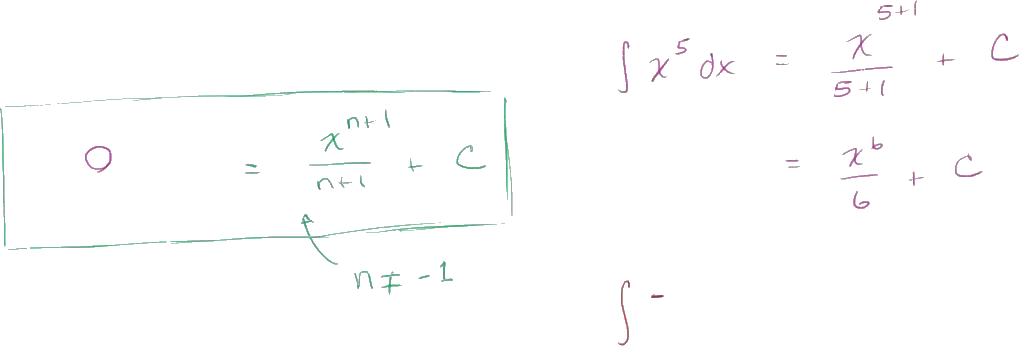 O = x^{n+1}/(n+1) + C
n ≠ -1
∫ x^5 dx = x^{5+1}/(5+1) + C
= x^6/6 + C
∫ -